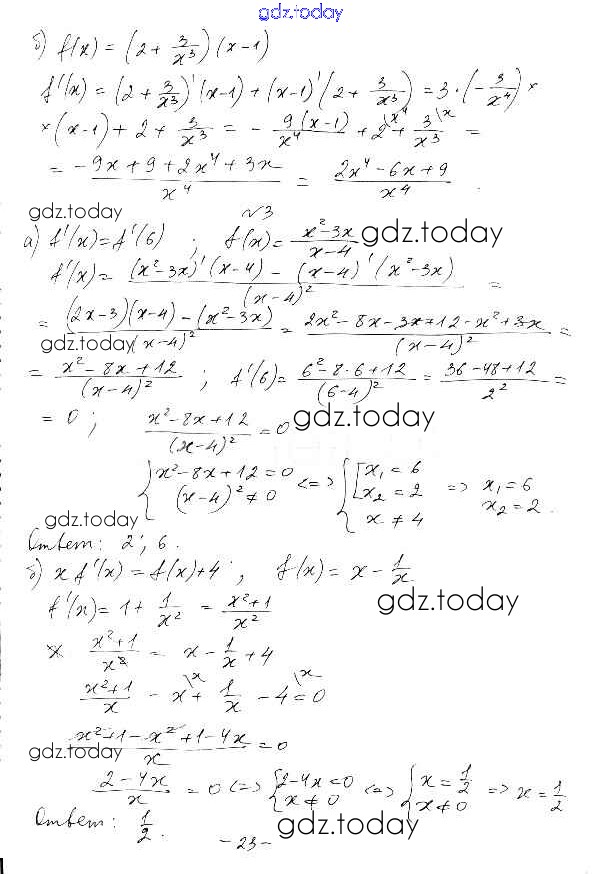 gdz.today
б) f(x) = (2 + 3/x³)(x-1)
f'(x) = (2 + 3/x³)'(x-1) + (x-1)'(2 + 3/x³) = 3·(-3/x⁴) ×
× (x-1) + 2 + 3/x³ = - 9(x-1)/x⁴ + 2\x⁴ + 3\x/x³ =
= (-9x + 9 + 2x⁴ + 3x)/x⁴ = (2x⁴ - 6x + 9)/x⁴.
gdz.today
№3
а) f'(x) = f'(6) ; f(x) = (x² - 3x)/(x-4)
gdz.today
f'(x) = ((x² - 3x)'(x-4) - (x-4)'(x² - 3x))/(x-4)² =
= ((2x-3)(x-4) - (x² - 3x))/(x-4)² = (2x² - 8x - 3x + 12 - x² + 3x)/(x-4)² =
gdz.today
= (x² - 8x + 12)/(x-4)² ; f'(6) = (6² - 8·6 + 12)/(6-4)² = (36 - 48 + 12)/2² =
= 0 ; (x² - 8x + 12)/(x-4)² = 0
gdz.today
{ x² - 8x + 12 = 0, (x-4)² ≠ 0 <=> { [ x₁ = 6, x₂ = 2, x ≠ 4 => x₁ = 6, x₂ = 2.
gdz.today
Ответ: 2; 6.
б) x f'(x) = f(x) + 4 ; f(x) = x - 1/x
f'(x) = 1 + 1/x² = (x² + 1)/x²
gdz.today
x (x² + 1)/x² = x - 1/x + 4
(x² + 1)/x - x\x + 1/x - 4\x = 0
(x² + 1 - x² + 1 - 4x)/x = 0
gdz.today
(2 - 4x)/x = 0 <=> { 2 - 4x = 0, x ≠ 0 <=> { x = 1/2, x ≠ 0 => x = 1/2
Ответ: 1/2.
- 23 -
gdz.today